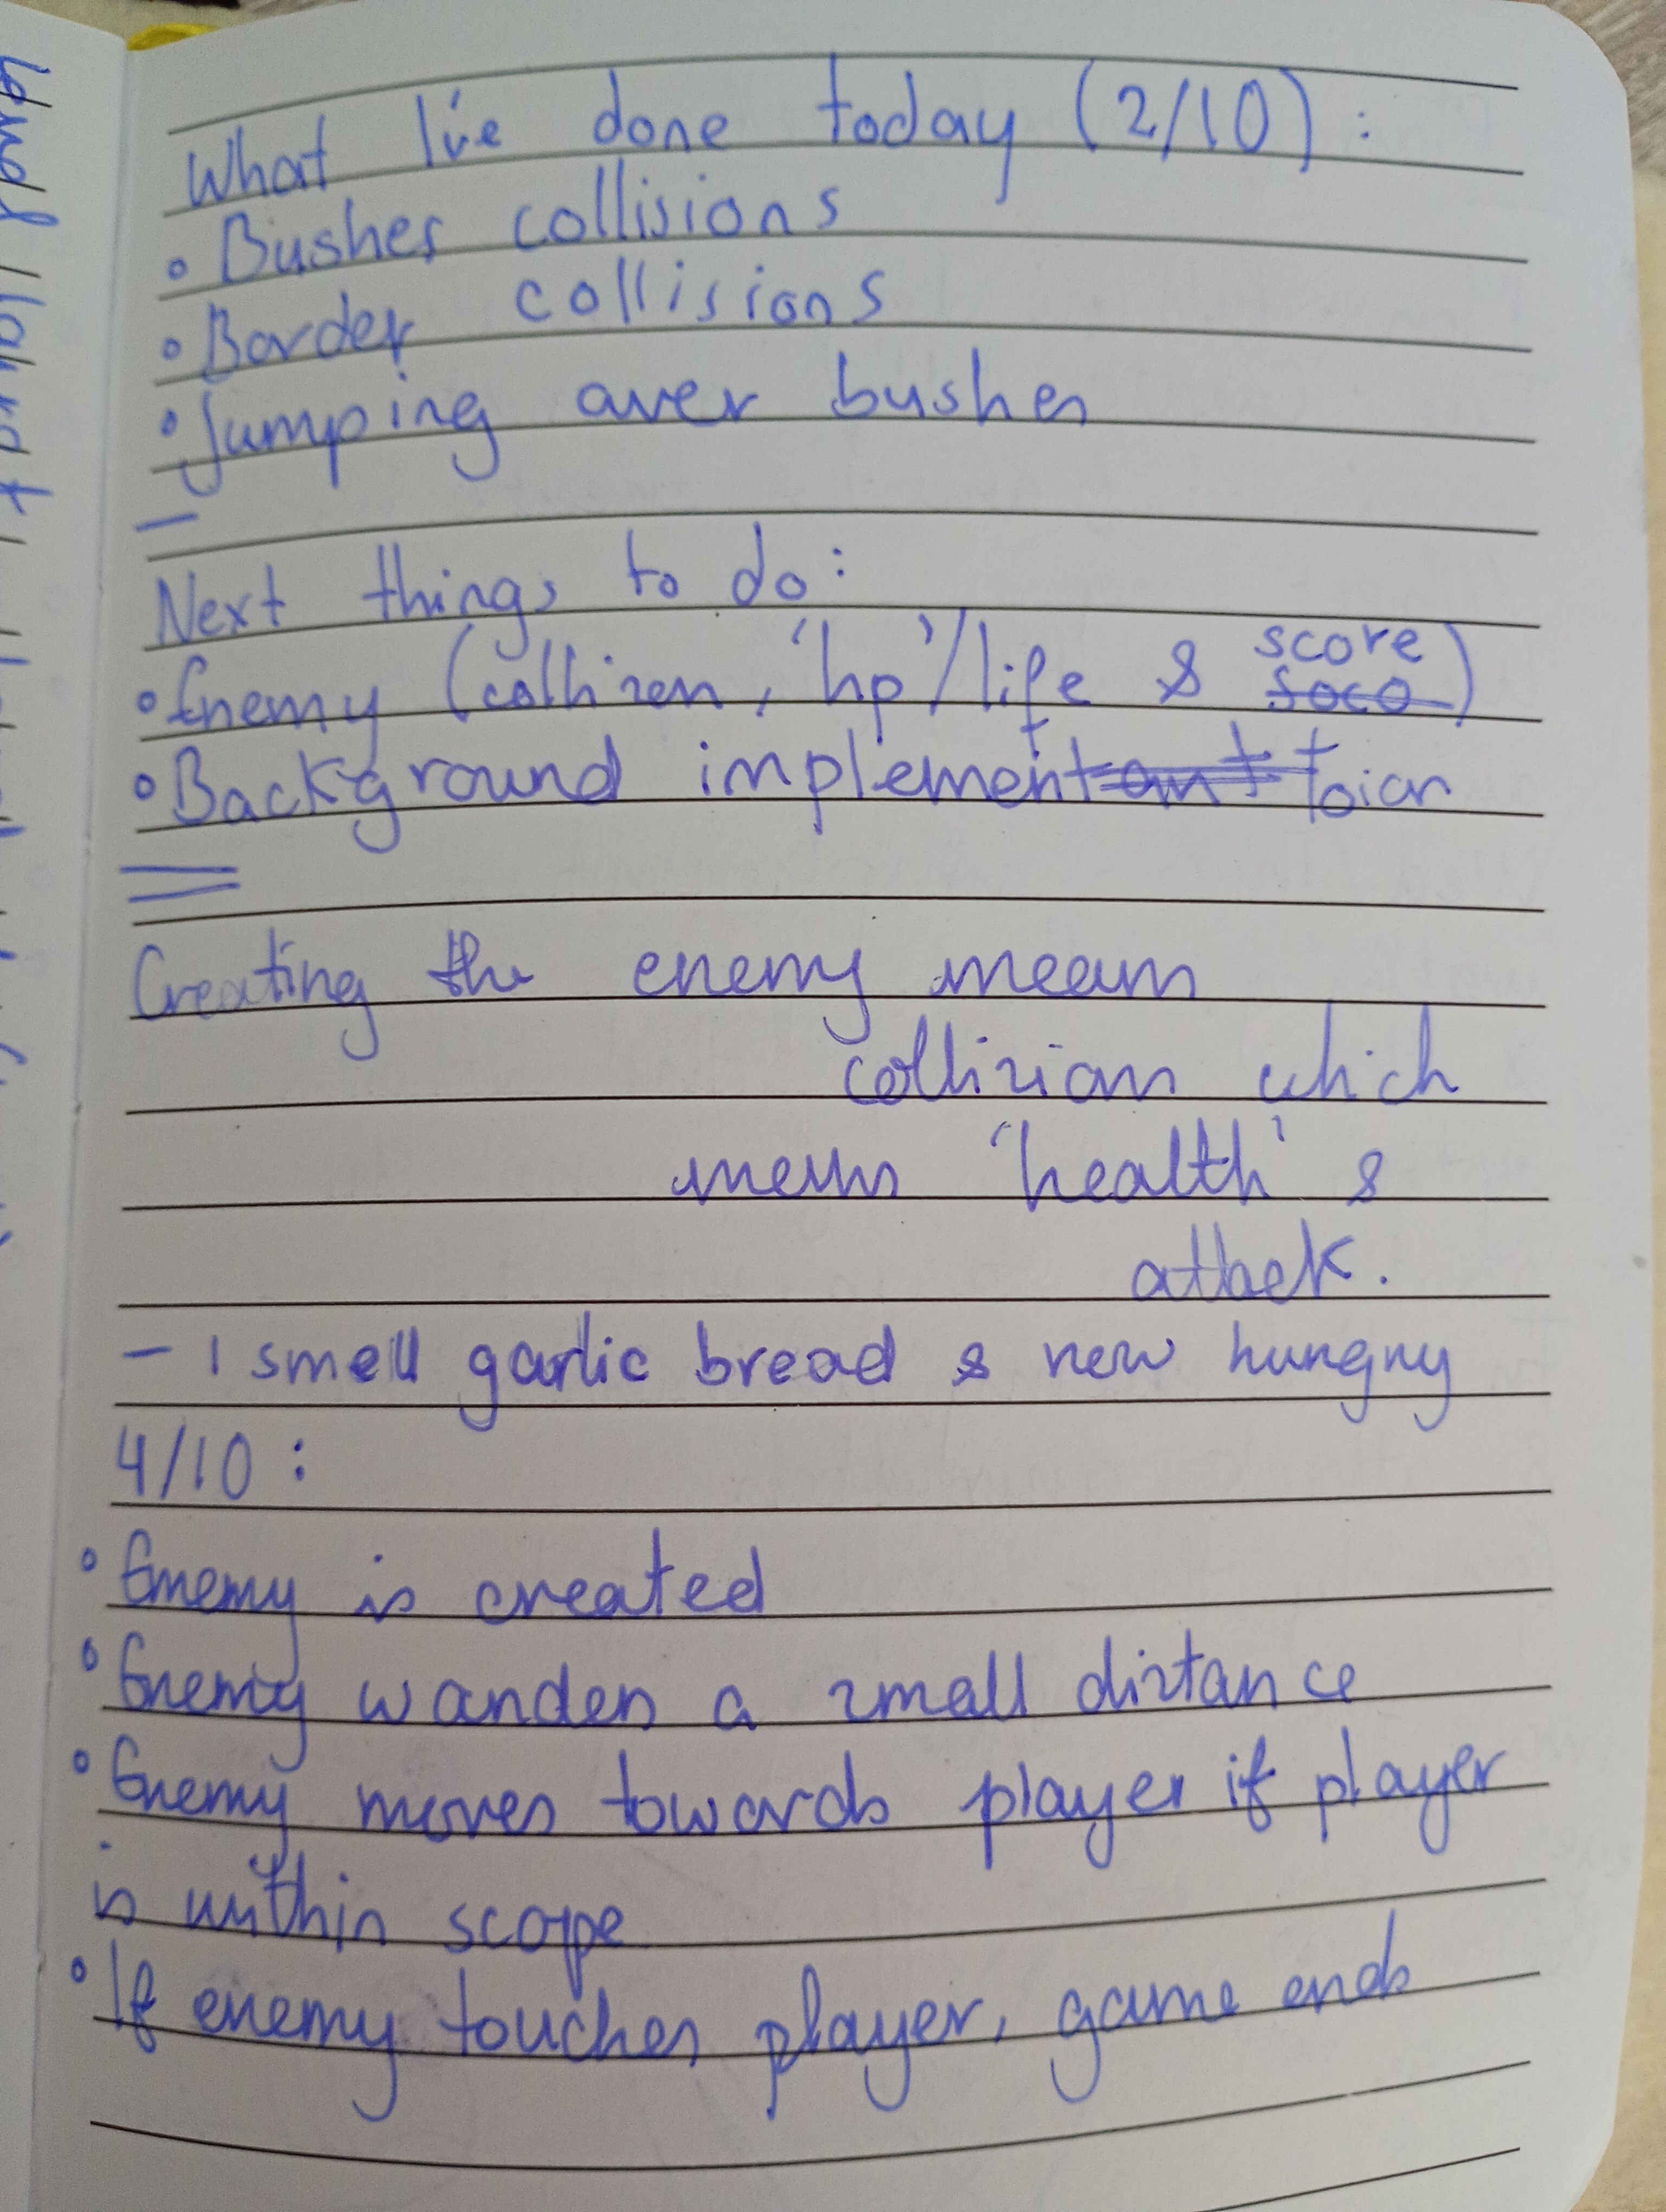 What I've done today (2/10):
• Bushes collisions
• Border collisions
• Jumping over bushes
—
Next things to do:
• Enemy (collision, 'hp'/life & score)
• Background implementation
Creating the enemy means
collision which
means 'health' &
attack.
- I smell garlic bread & now hungry
4/10:
• Enemy is created
• Enemy wanders a small distance
• Enemy moves towards player if player
is within scope
• If enemy touches player, game ends